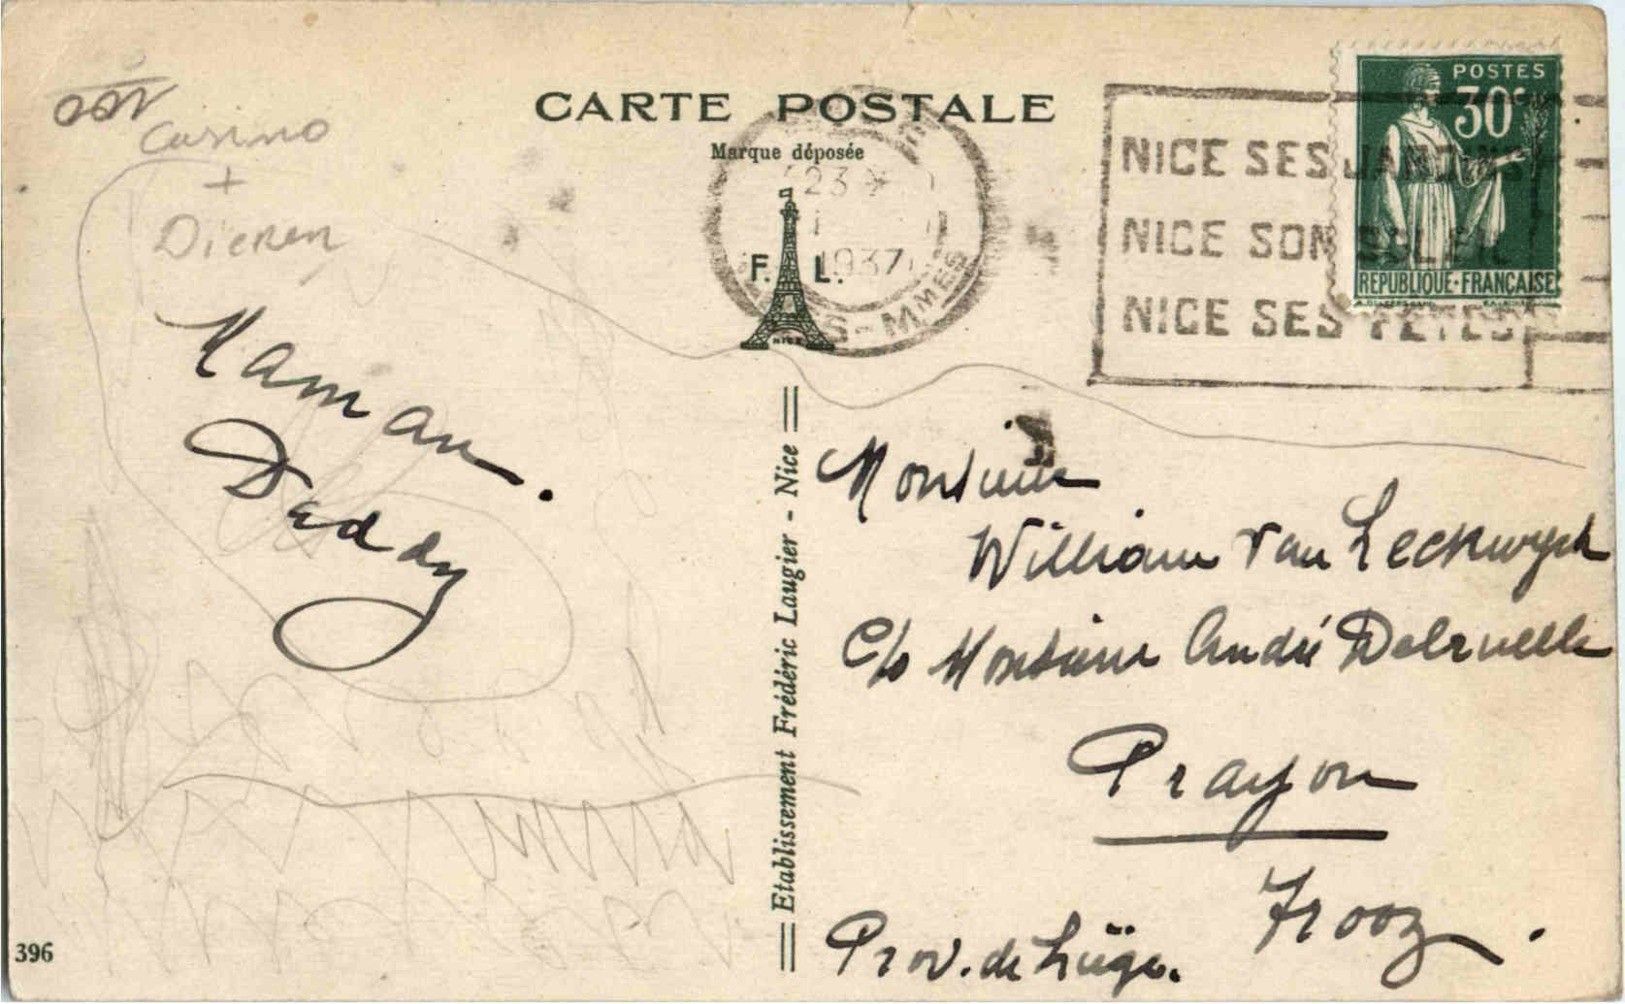 CARTE POSTALE
Marque déposée
F. L.
NICE
23
1
1937
S-MMES
NICE SES JARDINS
NICE SON SOLEIL
NICE SES FETES
POSTES
30c
REPUBLIQUE·FRANÇAISE
Casino
+
Dieren
Maman.
Daddy
Etablissement Frédéric Laugier - Nice
Monsieur
William van Leckwyck
C/o Monsieur André Delruelle
Prayon
Trooz.
Prov. de Liège.
396